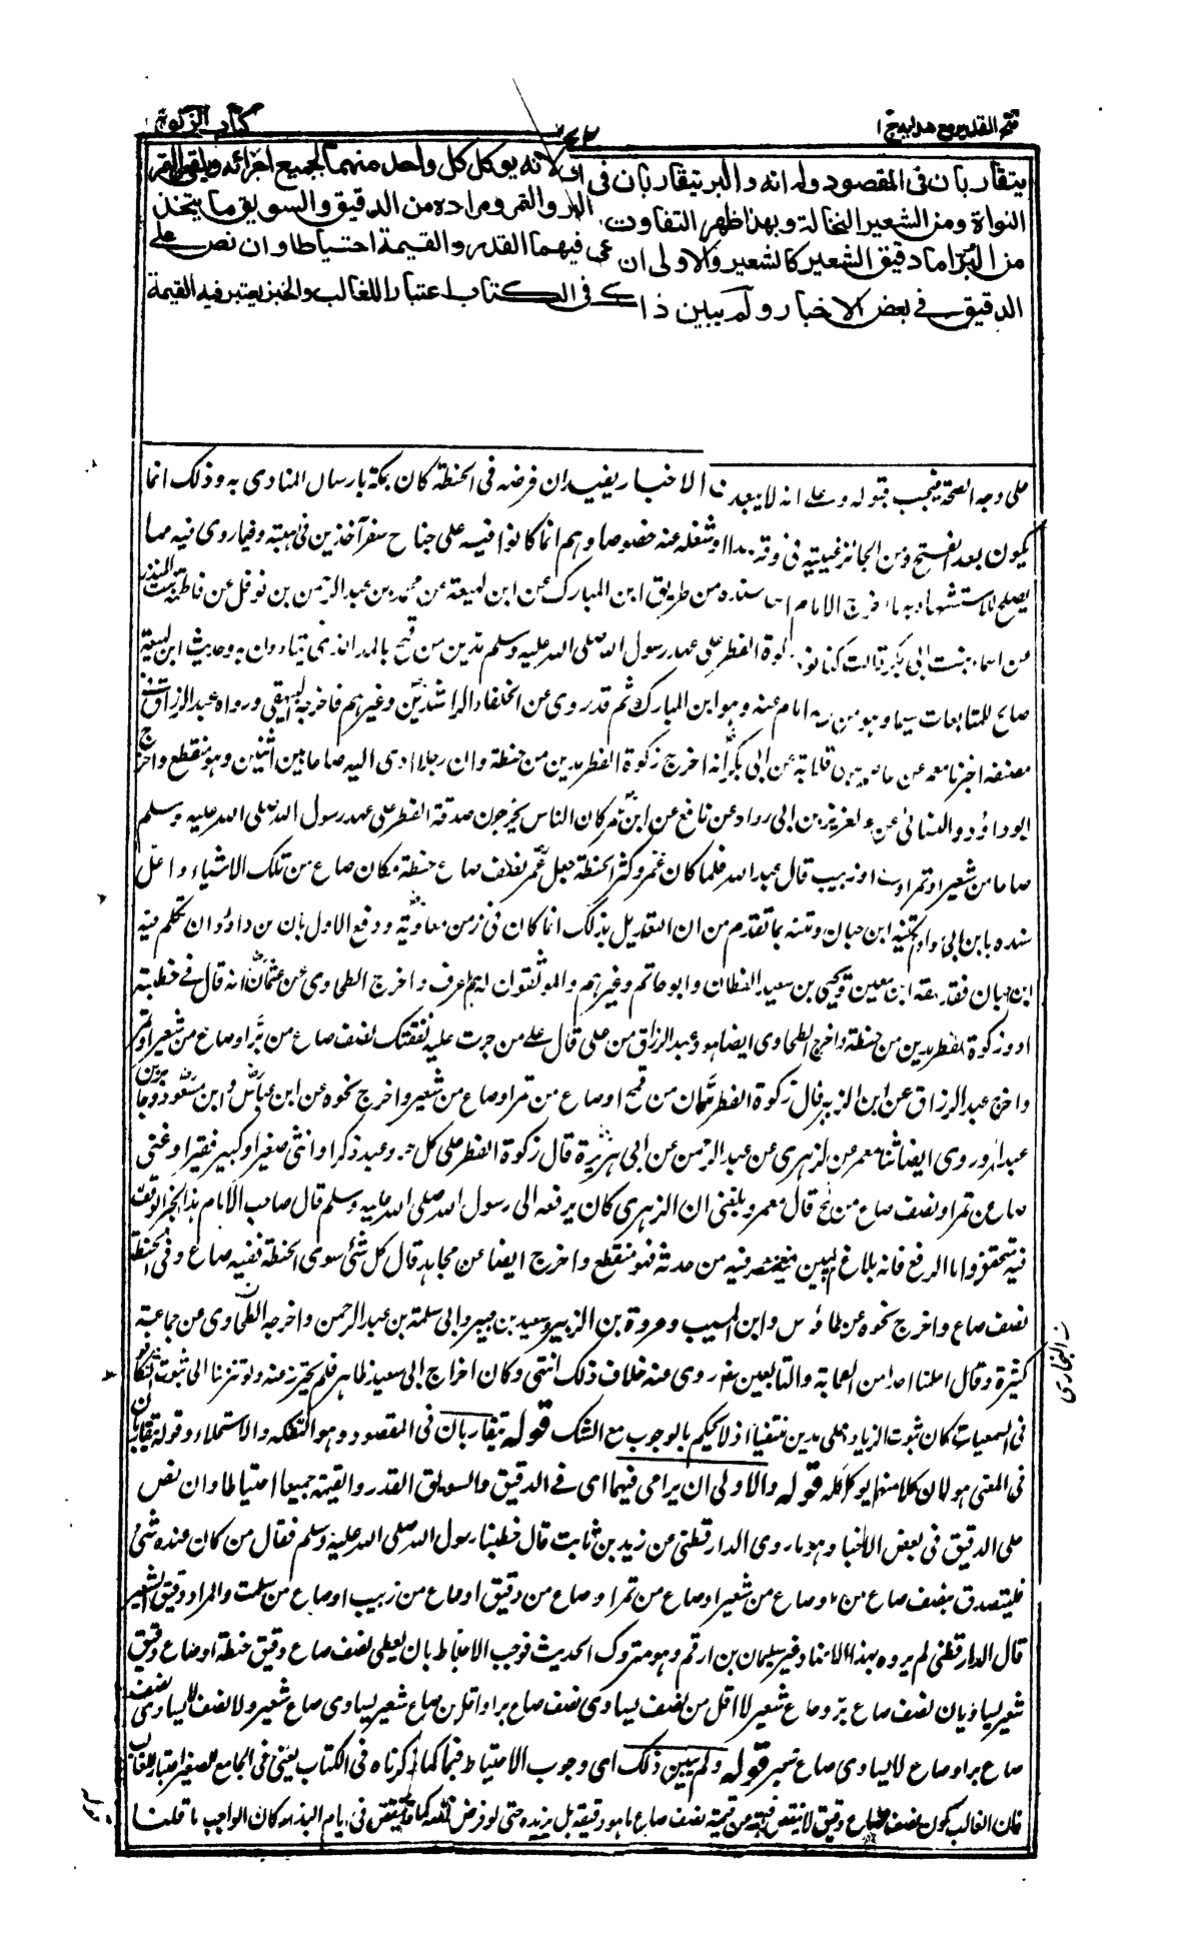 فتح القدير مع هدايه ج ١
كتاب الزكوة
يتقاربان فى المقصود وله انه والبر يتقاربان فى لانه يوكل كل واحد منهما بجميع اجزائه ويلقى من التمر
النواة ومن الشعير النخالة وبهذا ظهر التفاوت بين البر والتمر ومراده من الدقيق والسويق ما يتخذ
من البر اما دقيق الشعير كالشعير والاولى ان فيهما القدر والقيمة احتياطا وان نص على
الدقيق فى بعض الاخبار ولم يبين ذلك فى الكتاب اعتبارا للغالب والخبز يعتبر فيه القيمة
على وجه الصحة فيجب قبوله وعلى انه لا يبعد الاخبار يفيد ان فرضه فى الحنطة كان بمكة بارسال المنادى به وذلك انما
يكون بعد الفتح ومن الجائز غيبته فى وقت او شغله عنه خصوصا وهم انما كانوا فيه على جناح سفر آخذين فى اهبته وفيما روى فيه مما
يصلح للاستشهاد به ما اخرج الامام سنده من طريق ابن المبارك عن ابن لهيعة عن محمد بن عبد الرحمن بن نوفل عن فاطمة بنت المنذر
عن اسماء بنت ابى بكر قالت كنا زكوة الفطر على عهد رسول الله صلى الله عليه وسلم مدين من قمح بالمد الذى به وحديث ابن لهيعة
صالح للمتابعات سيما وهو من امام عنه وهو ابن المبارك ثم قد روى عن الخلفاء الراشدين وغيرهم فاخرجه البيهقى ورواه عبد الرزاق فى
مصنفه اخبرنا معمر عن عاصم عن ابى قلابة عن ابى بكر انه اخرج زكوة الفطر مدين من حنطة وان رجلا ادى اليه صاعا بين اثنين وهو منقطع واخرج
ابو داؤد والنسائى عن عبد العزيز بن ابى رواد عن نافع عن ابن عمر كان الناس يخرجون صدقة الفطر على عهد رسول الله صلى الله عليه وسلم
صاعا من شعير او تمر او سلت او زبيب قال عبد الله فلما كان عمر وكثر الحنطة جعل عمر نصف صاع حنطة مكان صاع من تلك الاشياء واعل
سنده بابن ابى رواد ابن حبان ومتنه بما تقدم من ان التعديل بذلك انما كان فى زمن معاوية ودفع الاول بان داؤد ان تكلم فيه
ابن حبان فقد وثقه ابن معين ويحيى بن سعيد القطان وابو حاتم وغيرهم والموثقون له اعرف واخرج الطحاوى عن عثمان انه قال فى خطبته
ادوا زكوة الفطر مدين من حنطة واخرج الطحاوى ايضا هو وعبد الرزاق عن على قال على من جرت عليه نفقتك نصف صاع من بر او صاع من شعير او تمر
واخرج عبد الرزاق عن ابن الزبير قال زكوة الفطر مدان من قمح او صاع من تمر او صاع من شعير واخرج نحوه عن ابن عباس وابن مسعود وجابر بن
عبد الله وروى ايضا ثنا معمر عن الزهرى عن عبد الرحمن عن ابى هريرة قال زكوة الفطر على كل حر وعبد ذكر او انثى صغير او كبير فقير او غنى
صاع من تمر او نصف صاع من قمح قال معمر وبلغنى ان الزهرى كان يرفعه الى رسول الله صلى الله عليه وسلم قال صاحب الامام هذا الخبر الوقف
فيه متحقق واما الرفع فانه بلاغ لم يبين معمر فيه من حدثه فهو منقطع واخرج ايضا عن مجاهد قال كل شئ سوى الحنطة ففيه صاع وفى الحنطة
نصف صاع واخرج نحوه عن طاؤس وابن المسيب وعروة بن الزبير وسعيد بن جبير وابى سلمة بن عبد الرحمن واخرجه الطحاوى عن جماعة
كثيرة وقال ما علمنا احدا من الصحابة والتابعين روى عنه خلاف ذلك انتهى وكان اخراج ابى سعيد ظاهر فلم يحترز عنه ولو تنزلنا الى ثبوت التكافؤ
فى السمعيات كان ثبوت الزيادة على مدين منتفيا اذ لا يحكم بالوجوب مع الشك قوله يتقاربان فى المقصود وهو التفكه والاستحلاء وقوله يتقاربان
فى المعنى هو لان كلا منهما يوكل كله قوله والاولى ان يراعى فيهما اى فى الدقيق والسويق القدر والقيمة جميعا احتياطا وان نص
على الدقيق فى بعض الاخبار وهو ما روى الدارقطنى عن زيد بن ثابت قال خطبنا رسول الله صلى الله عليه وسلم فقال من كان عنده شئ
فليتصدق بنصف صاع من بر او صاع من شعير او صاع من تمر او صاع من دقيق او صاع من زبيب او صاع من سلت والمراد دقيق الشعير
قال الدارقطنى لم يروه بهذا الاسناد غير سليمان بن ارقم وهو متروك الحديث فوجب الاحتياط بان يعطى نصف صاع دقيق حنطة او صاع دقيق
شعير يساويان نصف صاع بر وصاع شعير لا اقل من نصف يساوى نصف صاع بر او اقل من صاع شعير يساوى صاع شعير ولا نصف لا يساوى نصف
صاع بر او صاع لا يساوى صاع شعير قوله ولم يبين ذلك اى وجوب الاحتياط فيما كما ذكرناه فى الكتاب يعنى فى الجامع الصغير اعتبارا للغالب
فان الغالب كون نصف صاع دقيق لا ينقص قيمته عن قيمة نصف صاع ما هو دقيقه بل يزيده حتى لو فرض نقصه كما يتفق فى ايام البذر كان الواجب ما قلنا
البخارى